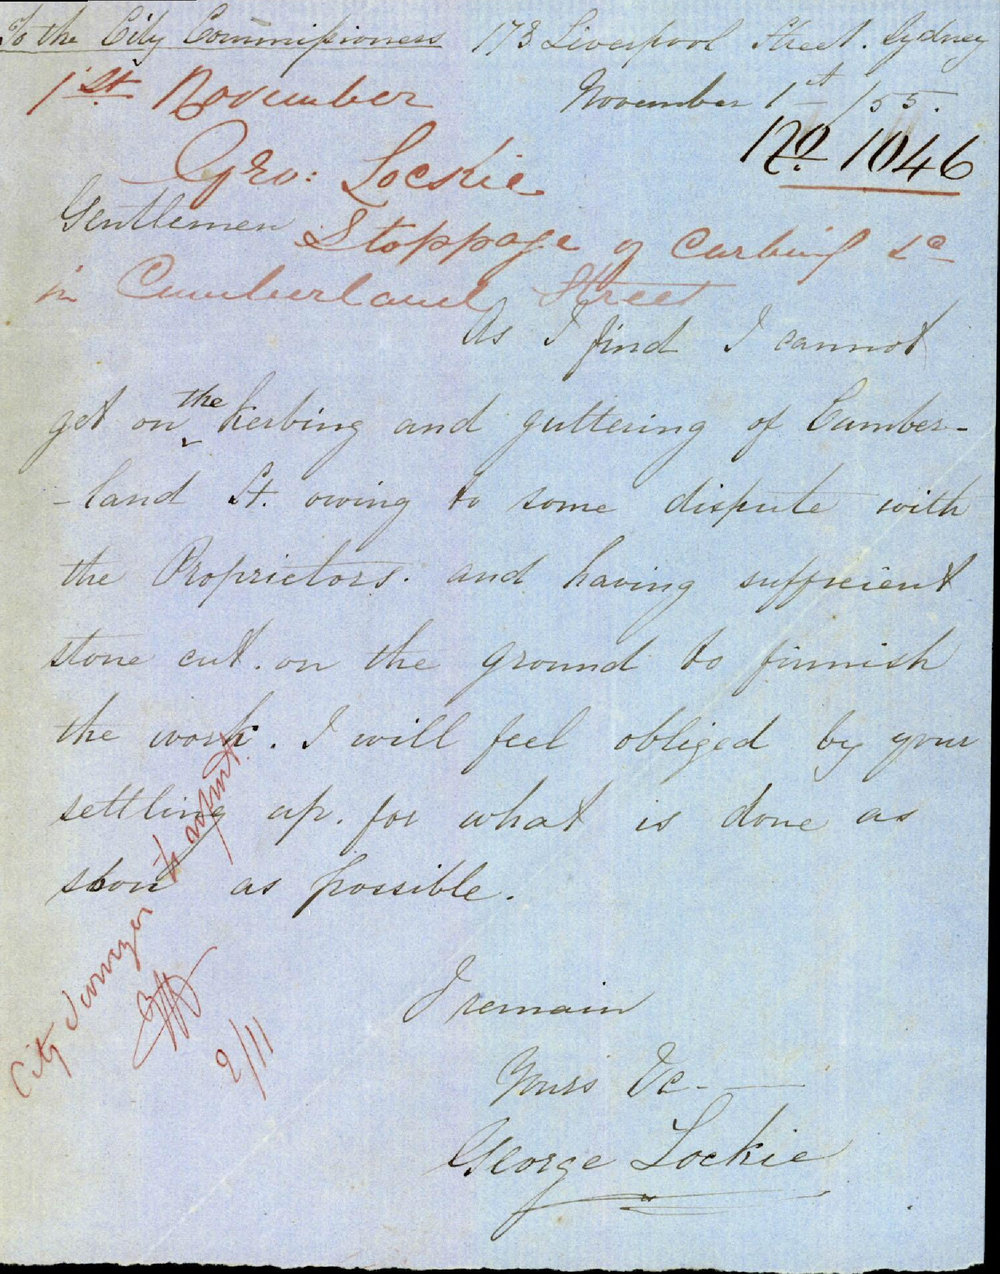 To the City Commissioners
173 Liverpool Street. Sydney
November 1st /55.
1st November
No. 1046
Geo: Lockie
Gentlemen
Stoppage of Curbing &c
in Cumberland Street
As I find I cannot
get on the kerbing and guttering of Cumber-
-land St. owing to some dispute with
the Proprietors. and having sufficient
stone cut. on the ground to finnish
the work. I will feel obliged by your
settling up. for what is done as
soon as possible.
City Surveyor to report.
2/11
I remain
Yours &c
George Lockie